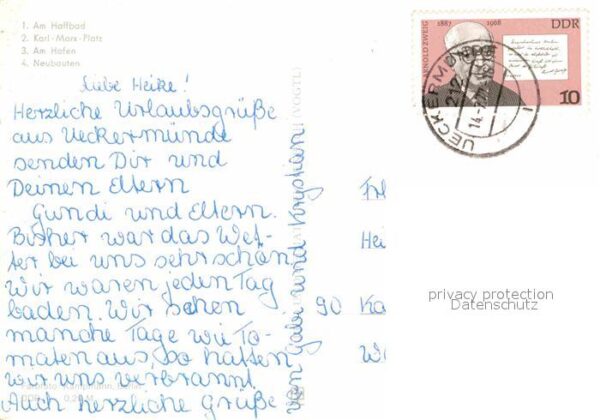 1. Am Haffbad
2. Karl-Marx-Platz
3. Am Hafen
4. Neubauten
Liebe Heike!
Herzliche Urlaubsgrüße
aus Ueckermünde
senden Dir und
Deinen Eltern
Gundi und Eltern.
Bisher war das Wet-
ter bei uns sehr schön
Wir waren jeden Tag
baden. Wir sehen
manche Tage wie To-
maten aus, so hatten
wir uns verbrannt.
Auch herzliche Grüße
von Gabi und
(VOGTL)
ARNOLD ZWEIG 1887 1968 DDR
10
UECKERMÜNDE 1
212
Hei
90
privacy protection
Datenschutz